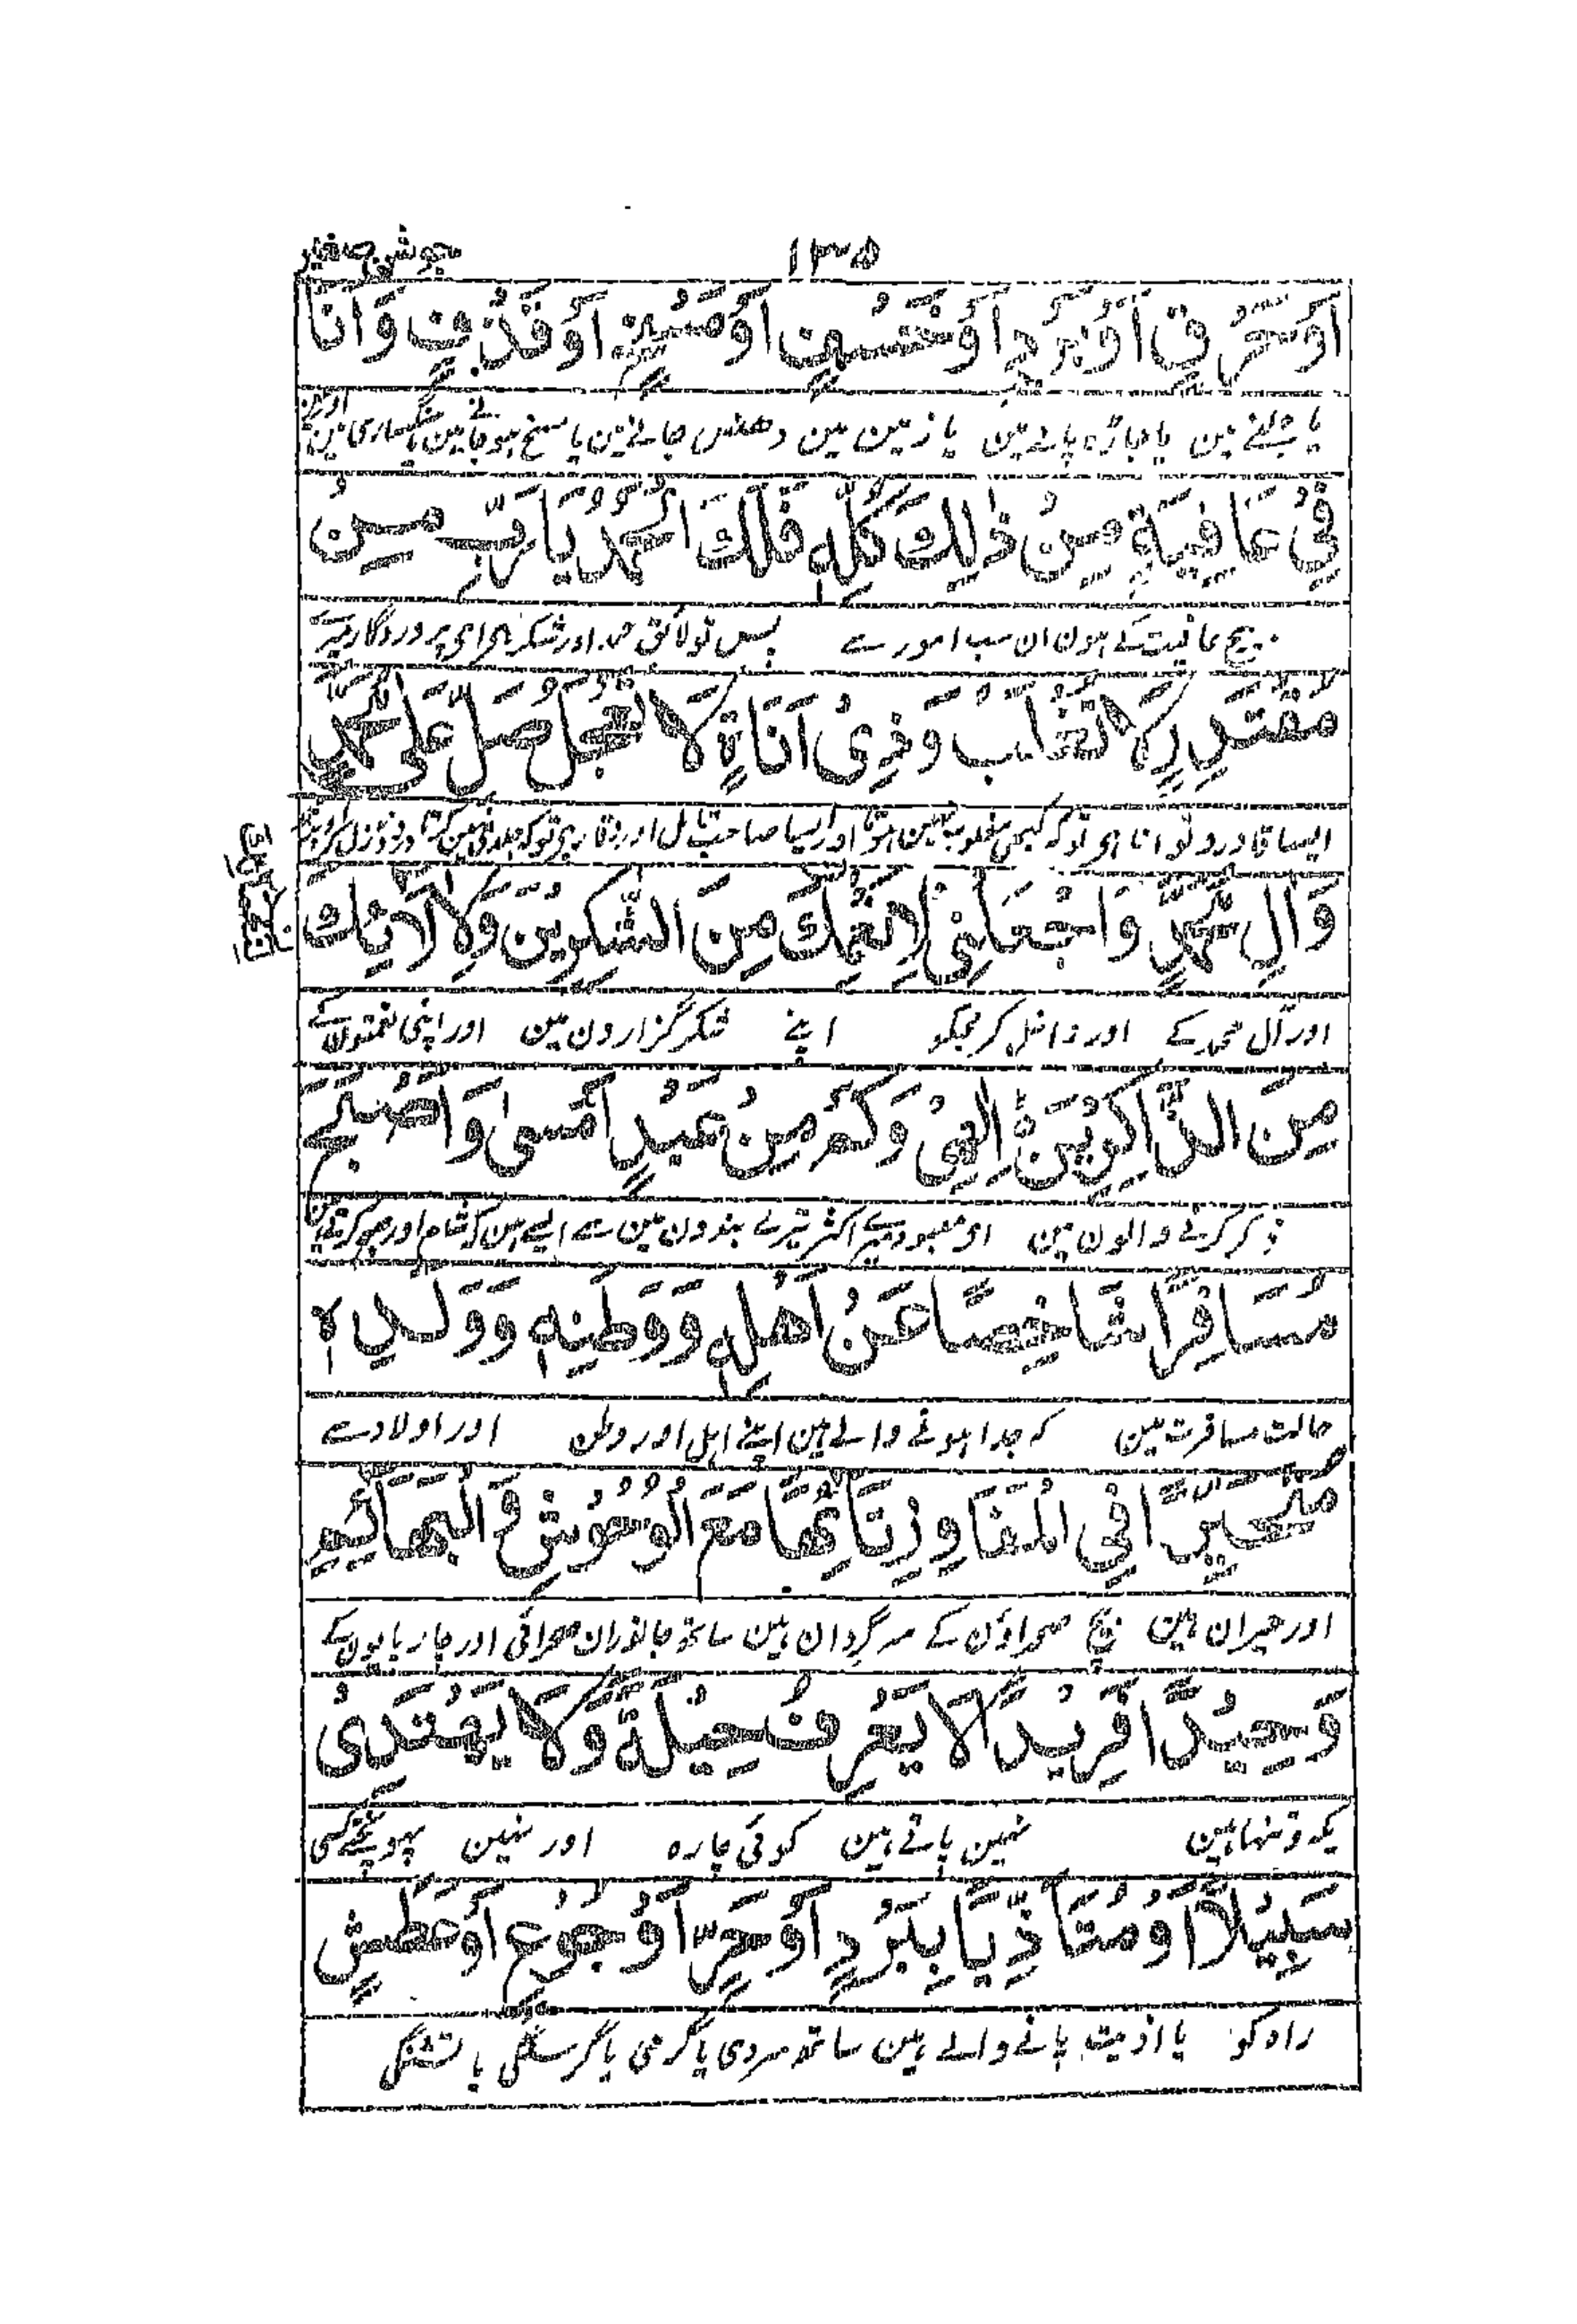 ۱۳۵
جوشن صغیر
اَوْ حَرْقٍ اَوْ بَرْدٍ اَوْ خَسْفٍ اَوْ مَسْخٍ اَوْ قَذْفٍ وَاَنَا
یا جلنے مین یا جاڑہ پانے مین یا زمین مین دھنس جانے مین یا مسخ ہو جانے مین یا سنگساری مین اور مین
فِیْ عَافِیَةٍ مِنْ ذٰلِكَ كُلِّهٖ فَلَكَ الْحَمْدُ یَا رَبِّ مِنْ
بیچ عافیت کے ہون ان سب امور سے پس تو لائق حمد اور شکر ہی ای پروردگار میرے
مُقْتَدِرٍ لَا تُغْلَبُ وَذِیْ اَنَاةٍ لَا تَعْجَلُ صَلِّ عَلٰی مُحَمَّدٍ
ایسا قادر و توانا ہی تو کہ کبھی مغلوب نہین ہوتا اور ایسا صاحب تامل اور وقار ہی تو کہ جلدی نہین کرتا درود نازل کر اوپر
وَاٰلِ مُحَمَّدٍ وَاجْعَلْنِیْ لِاَنْعُمِكَ مِنَ الشّٰكِرِیْنَ وَلِاٰلَائِكَ
اور آل محمد کے اور داخل کر مجکو اپنے شکر گزارون مین اور اپنی نعمتون کے
مِنَ الذَّاكِرِیْنَ اِلٰهِیْ وَكَمْ مِنْ عَبْدٍ اَمْسٰی وَاَصْبَحَ
ذکر کرنے والون مین ای معبود میرے اکثر تیرے بندون مین سے ایسے ہین کہ شام اور صبح کرتے ہین
مُسَافِرًا شَاخِصًا عَنْ اَهْلِهٖ وَوَطَنِهٖ وَوَلَدِهٖ
حالت مسافرت مین کہ جدا ہونے والے ہین اپنے اہل اور وطن اور اولاد سے
مُتَحَیِّرًا فِی الْمَفَاوِزِ تَائِهًا مَعَ الْوُحُوْشِ وَالْبَهَائِمِ
اور حیران ہین بیچ صحراؤن کے سرگردان ہین ساتھ جانوران صحرائی اور چارپایون کے
وَحِیْدًا فَرِیْدًا لَا یَعْرِفُ حِیْلَةً وَّلَا یَهْتَدِیْ
یکہ و تنہا ہین نہین پاتے ہین کوئی چارہ اور نہین پہونچتے کسی
سَبِیْلًا اَوْ مُتَاَذِّیًا بِبَرْدٍ اَوْ حَرٍّ اَوْ جُوْعٍ اَوْ عَطَشٍ
راہ کو یا اذیت پانے والے ہین ساتھ سردی یا گرمی یا گرسنگی یا تشنگی